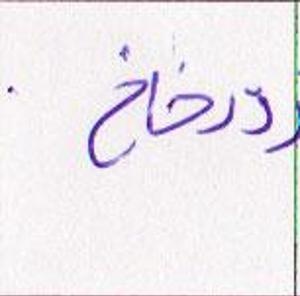 ردرخاخ